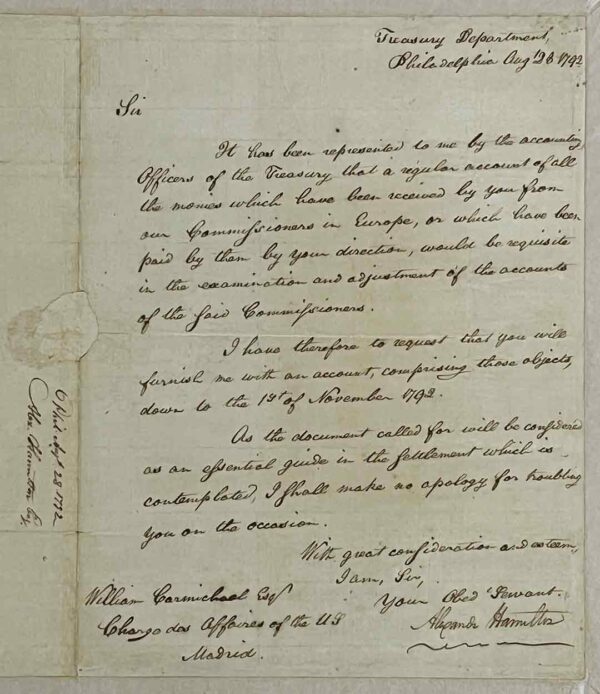 Treasury Department,
Philadelphia Augt 28 1792
Sir
It has been represented to me by the accounting
Officers of the Treasury that a regular account of all
the monies which have been received by you from
our Commissioners in Europe, or which have been
paid by them by your direction, would be requisite
in the examination and adjustment of the accounts
of the said Commissioners.
I have therefore to request that you will
furnish me with an account, comprising those objects,
down to the 1st of November 1792.
As the document called for will be considered
as an essential guide in the settlement which is
contemplated, I shall make no apology for troubling
you on the occasion.
With great consideration and esteem,
I am, Sir,
Your Obed Servant.
Alexander Hamilton
William Carmichael Esqr
Charge das Affaires of the US
Madrid.
28 1792
Alex. Hamilton Esq.